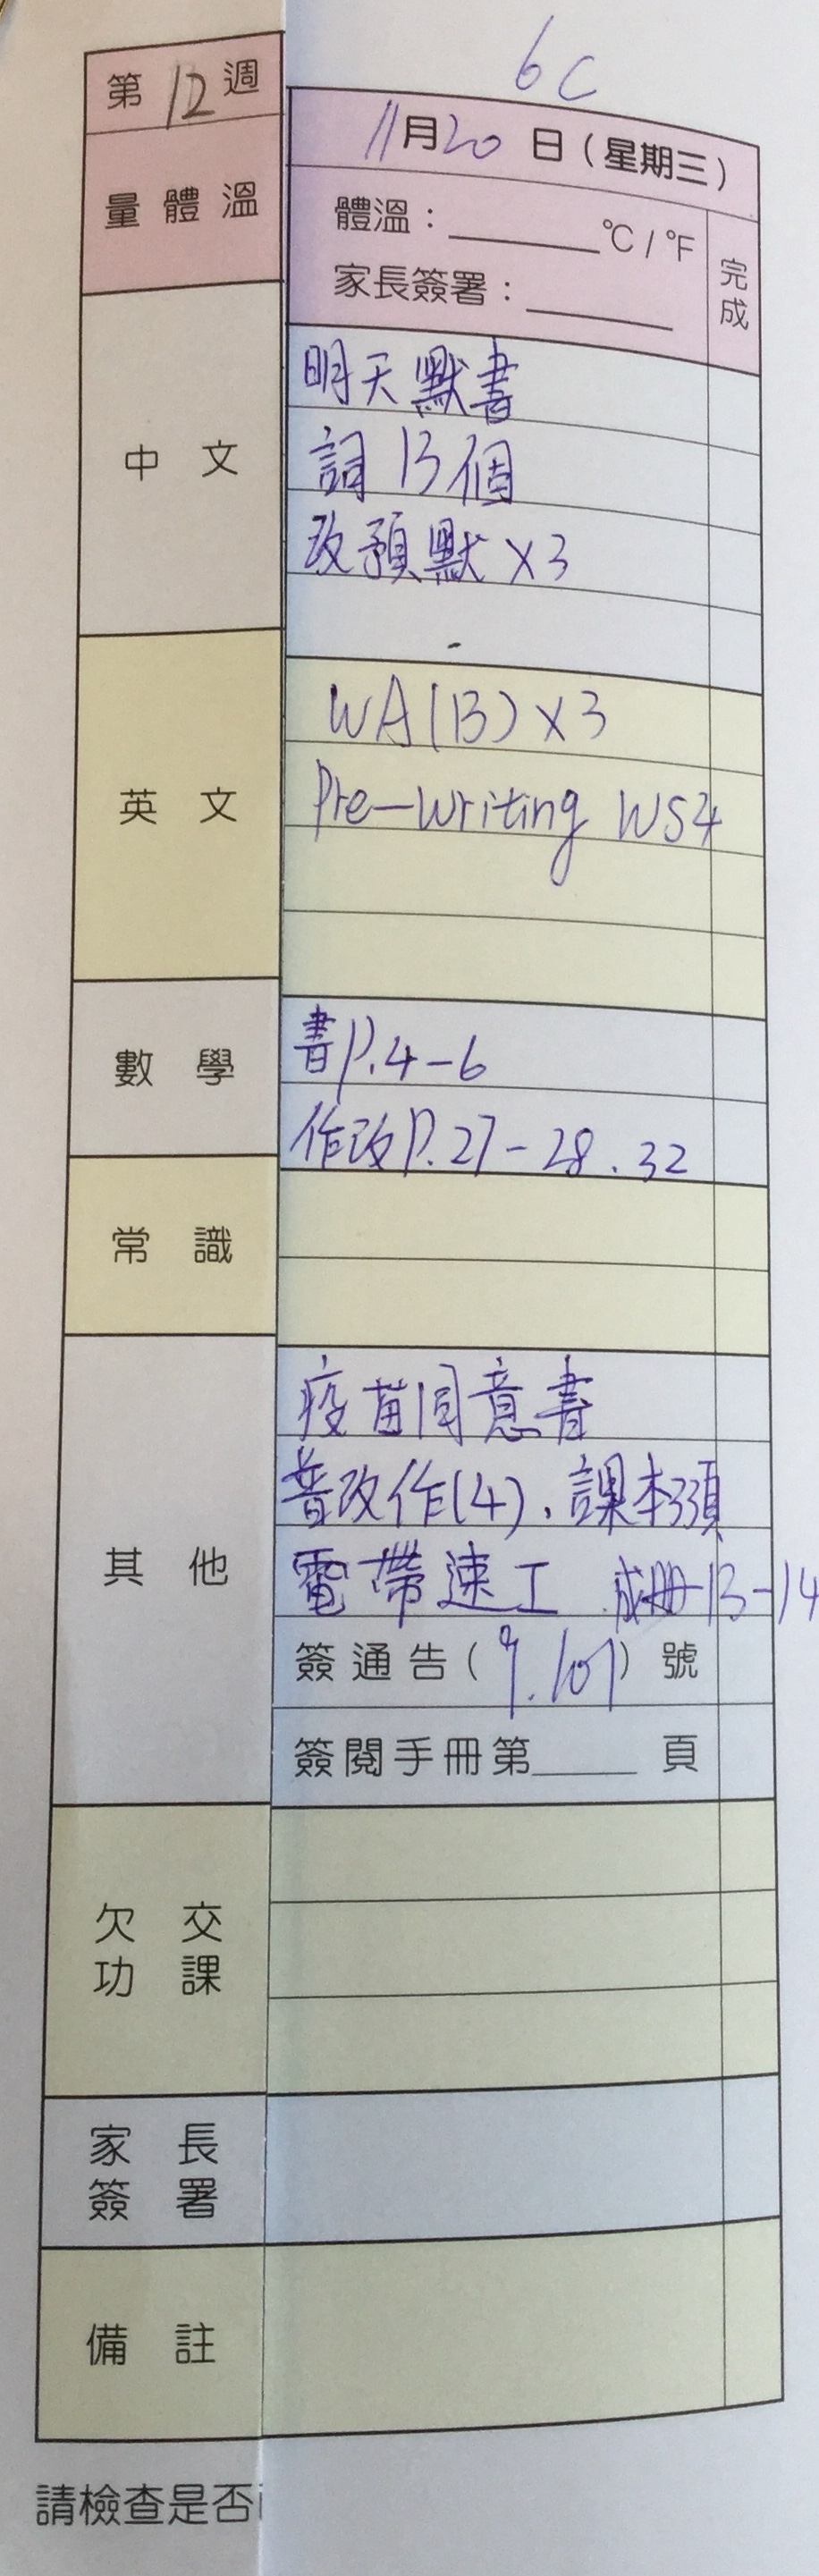 6C
第12週
11月20日(星期三)
量體溫
體溫：______°C/°F
家長簽署：______
完成
中文
明天默書
詞13個
改預默×3
英文
WA(13)×3
Pre-writing WS4
數學
書P.4-6
作改P.27-28.32
常識
其他
疫苗同意書
普改作(4)、課本33頁
電帶速工 成册13-14
簽通告(9.101)號
簽閱手冊第____頁
欠交
功課
家長
簽署
備註
請檢查是否